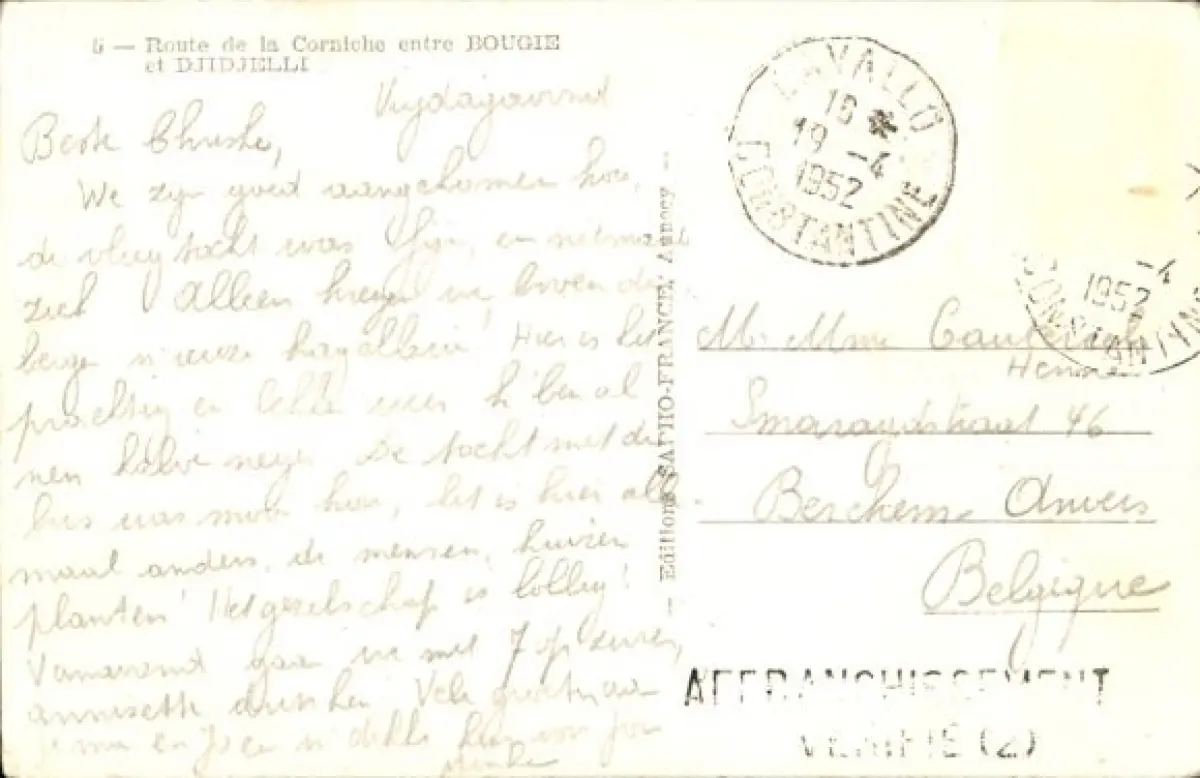 5 — Route de la Corniche entre BOUGIE
et DJIDJELLI
Vrijdagavond
Beste
We zijn goed aangekomen hoor,
de vliegtocht was fijn, en niemand
ziek! Alleen kregen we boven de
bergen hagel Hier is het
prachtig en weer k'ben al
nen halve neger De tocht met de
bus was hier, het is hier alle
maal anders, de mensen, huizen
planten! Het gezelschap is lollig!
Vanavond gaan we met 7 op zwier,
annisette drinken Vele groeten aan
en Jos en
— Editions SAPHO-FRANCE, Annecy —
CAVALLO
18 *
19 -4
1952
CONSTANTINE
-4
1952
CONSTANTINE
Mr. Mme
Smaragdstraat 46
Berchem Anvers
Belgique
AFFRANCHISSEMENT
VERIFIE (2)